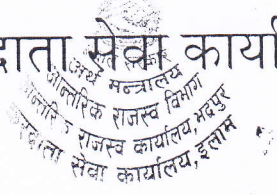 दाता सेवा कार्या
अर्थ मन्त्रालय
आन्तरिक राजस्व विभाग
आन्तरिक राजस्व कार्यालय, भद्रपुर
करदाता सेवा कार्यालय, इलाम